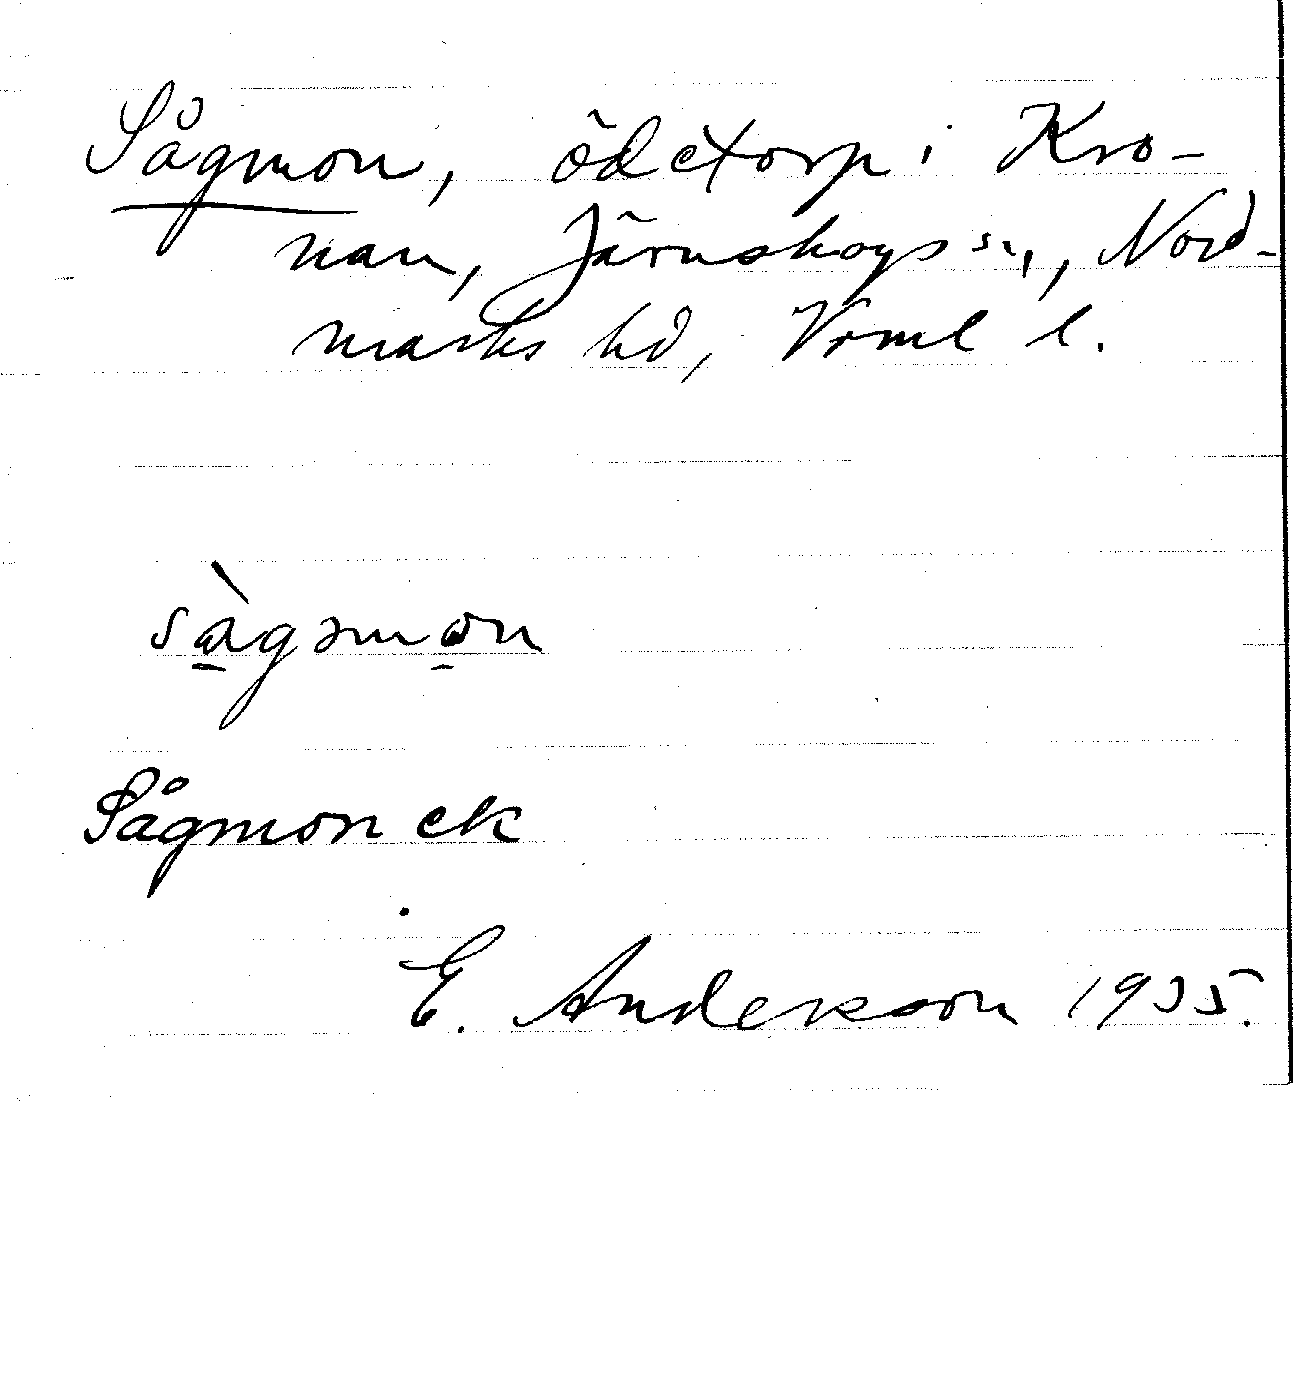 Sågmon, ödetorp i Kro-
nan, Järnskogs sn, Nord-
marks hd, Vrml l.
sàgəmon
Sågmon ek
E. Andersson 1935.